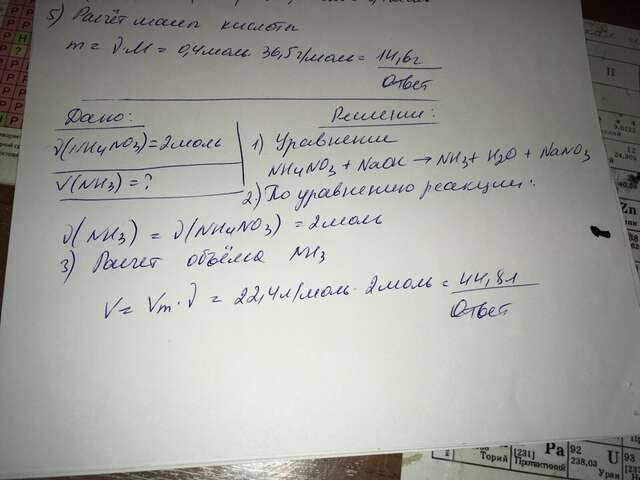 5) Расчёт массы кислоты
m = ν·M = 0,4моль · 36,5г/моль = 14,6г
Ответ
Дано:
Решение:
ν(NH4NO3)=2моль
V(NH3)=?
1) Уравнение
NH4NO3 + NaOH → NH3 + H2O + NaNO3
2) По уравнению реакции:
ν(NH3) = ν(NH4NO3) = 2моль
3) Расчет объёма NH3
V = Vm · ν = 22,4л/моль · 2моль = 44,8л
Ответ
Zn
Торий
[231] Pa
Протактиний
92 U
238,03
Уран
93